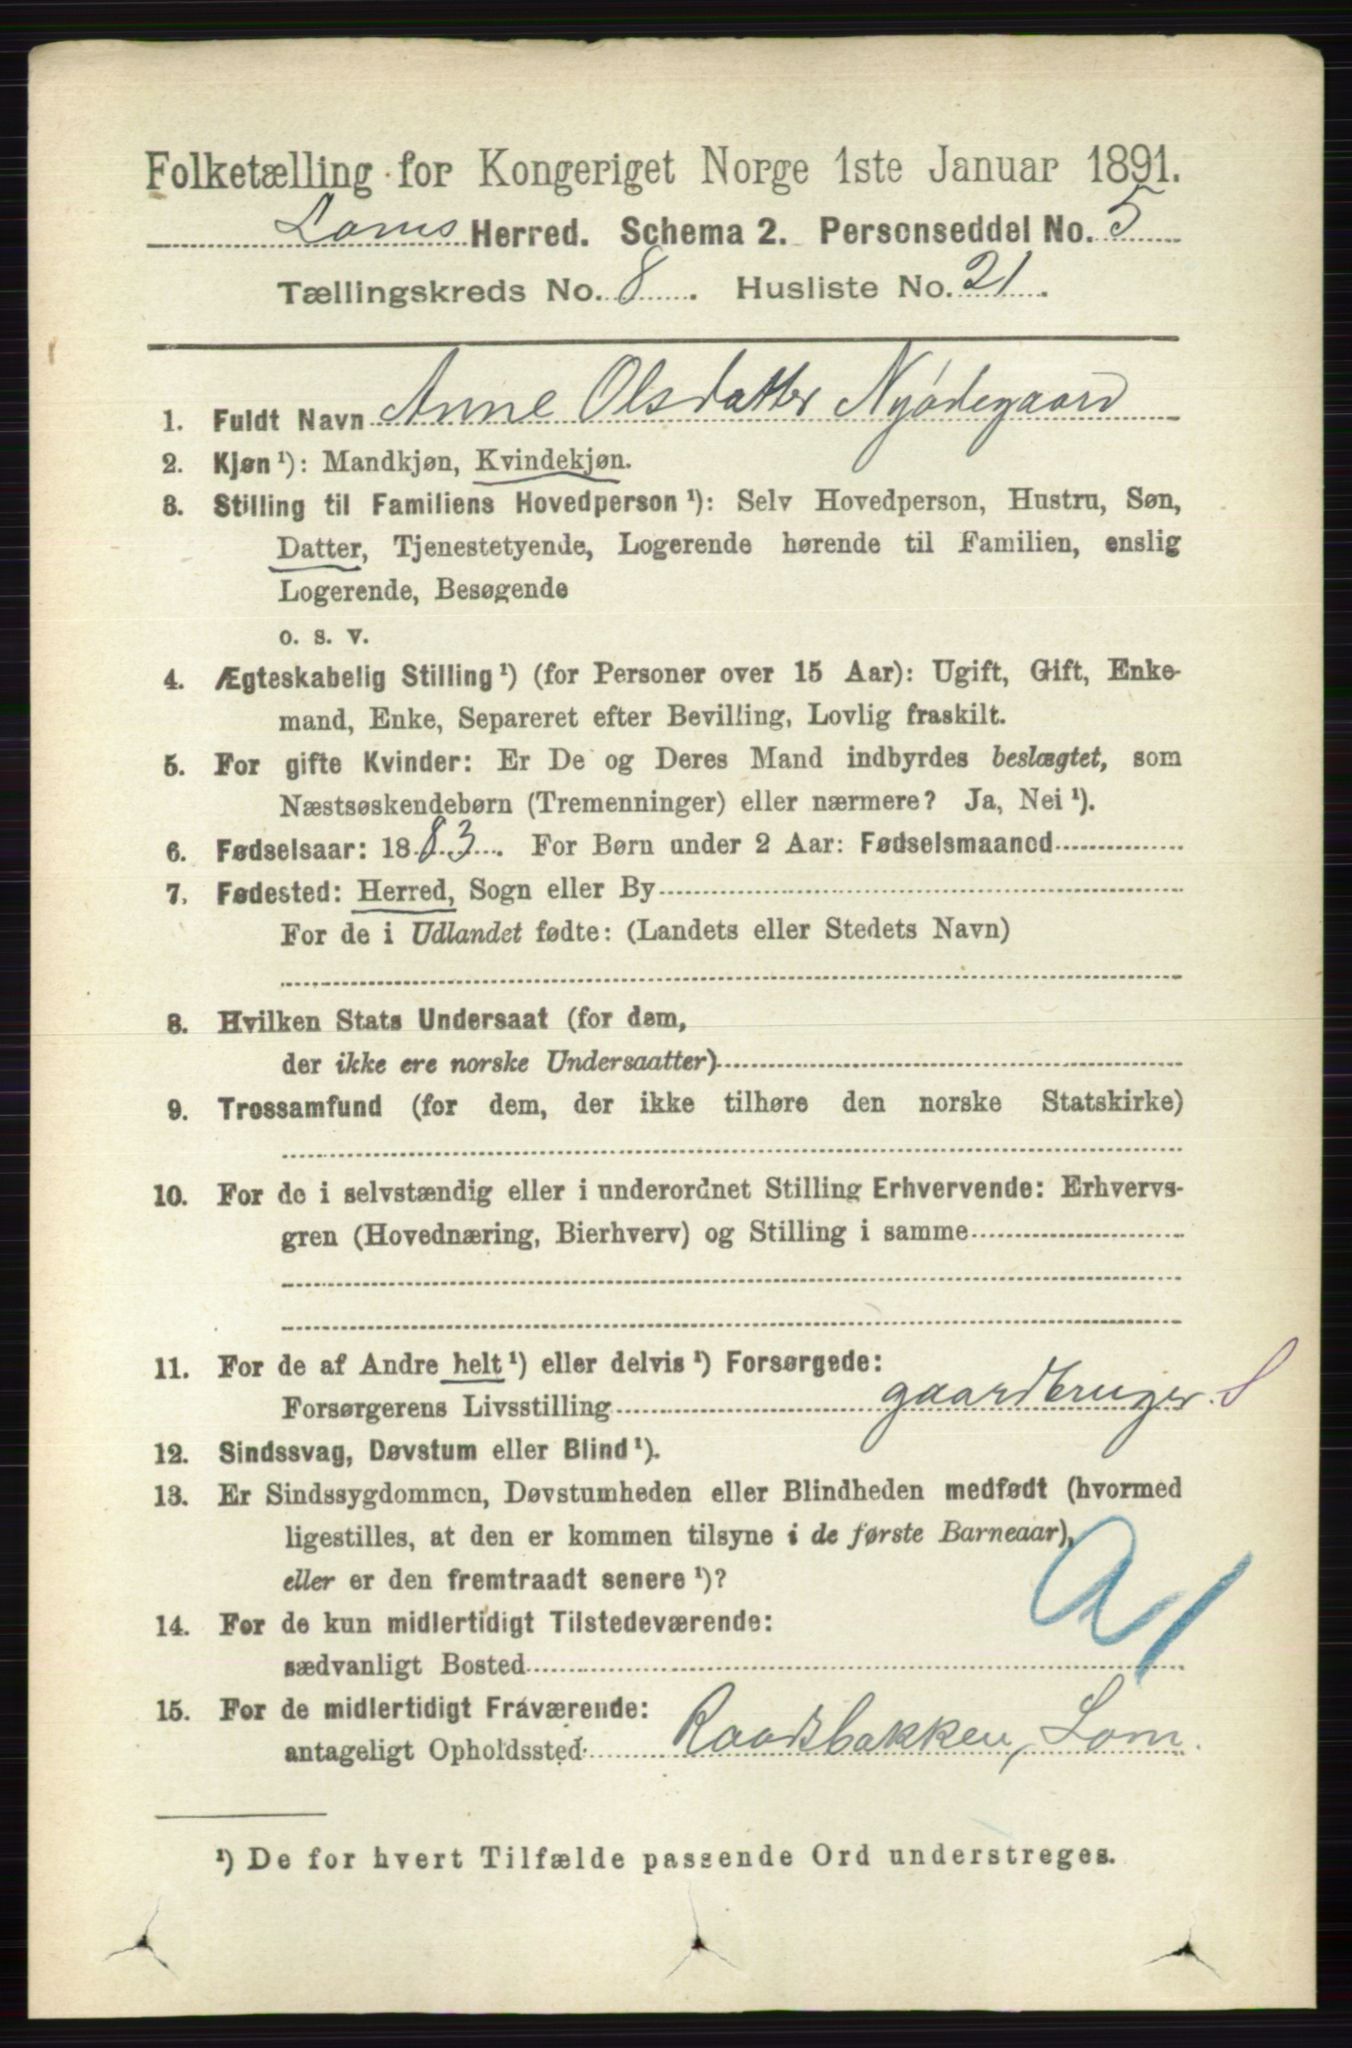 Folketælling for Kongeriget Norge 1ste Januar 1891.
Loms Herred. Schema 2. Personseddel No. 5
Tællingskreds No. 8. Husliste No. 21.
1. Fuldt Navn Anne Olsdatter Nyødegaard
2. Kjøn¹): Mandkjøn, Kvindekjøn.
3. Stilling til Familiens Hovedperson¹): Selv Hovedperson, Hustru, Søn,
Datter, Tjenestetyende, Logerende hørende til Familien, enslig
Logerende, Besøgende
o. s. v.
4. Ægteskabelig Stilling¹) (for Personer over 15 Aar): Ugift, Gift, Enke-
mand, Enke, Separeret efter Bevilling, Lovlig fraskilt.
5. For gifte Kvinder: Er De og Deres Mand indbyrdes beslægtet, som
Næstsøskendebørn (Tremenninger) eller nærmere? Ja, Nei¹).
6. Fødselsaar: 1883. For Børn under 2 Aar: Fødselsmaaned
7. Fødested: Herred, Sogn eller By
For de i Udlandet fødte: (Landets eller Stedets Navn)
8. Hvilken Stats Undersaat (for dem,
der ikke ere norske Undersaatter)
9. Trossamfund (for dem, der ikke tilhøre den norske Statskirke)
10. For de i selvstændig eller i underordnet Stilling Erhvervende: Erhvervs-
gren (Hovednæring, Bierhverv) og Stilling i samme
11. For de af Andre helt¹) eller delvis¹) Forsørgede:
Forsørgerens Livsstilling gaardbruger. S
12. Sindssvag, Døvstum eller Blind¹).
13. Er Sindssygdommen, Døvstumheden eller Blindheden medfødt (hvormed
ligestilles, at den er kommen tilsyne i de første Barneaar),
eller er den fremtraadt senere¹)?
14. For de kun midlertidigt Tilstedeværende:
sædvanligt Bosted
15. For de midlertidigt Fraværende:
antageligt Opholdssted Lom.
¹) De for hvert Tilfælde passende Ord understreges.